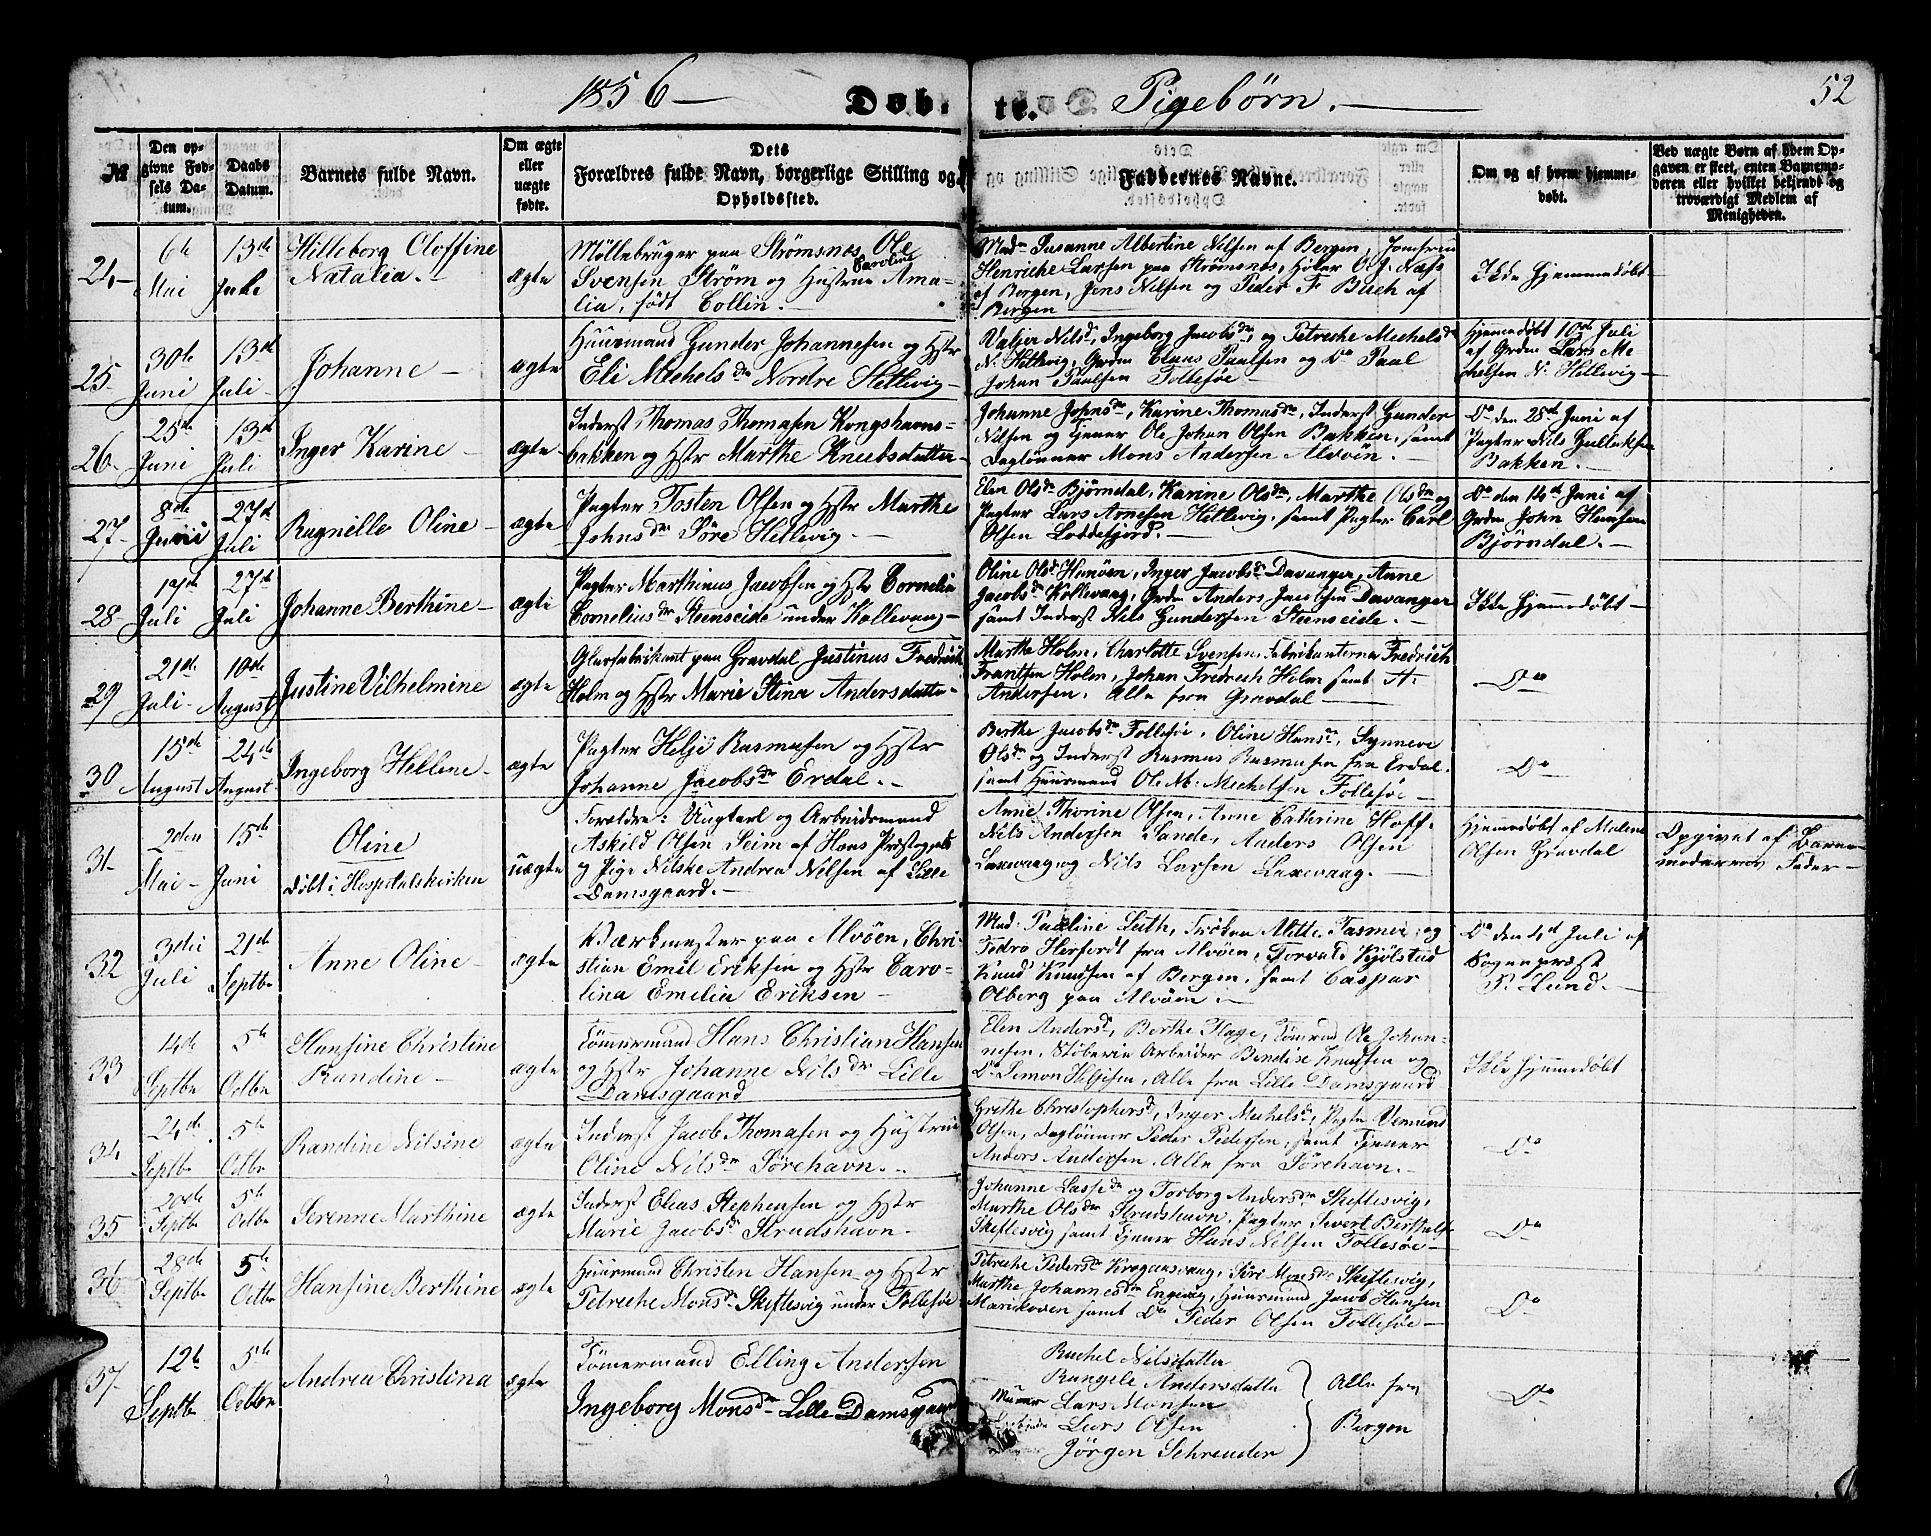 1856 — Døb- te. Pigebørn. — 52
№
Den op-
givne Fød-
sels Da-
tum.
Daabs
Datum.
Barnets fulde Navn.
Om ægte
eller
uægte
fødte.
Dets
Forældres fulde Navn, borgerlige Stilling og
Opholdssted.
Faddernes Navne.
Om og af hvem hjemme-
døbt.
Ved uægte Børn af hvem Op-
gaven er skeet, enten Barnemo-
deren eller hvilket bekjendt og
troværdigt Medlem af
Menigheden.
24-
6te
Mai
13de
Juli
Hilleborg Cloffine
Natalia. -
ægte
Møllebruger paa Strømsnes Ole
Svensen Strøm og Hustrue Caroline Ama-
lia, født Collin. -
Mad. Susanne Albertine Nilsen af Bergen, Jomfrue
Henriche Larsen paa Strømsnes, Høker O. J. Næss
af Bergen, Jens Nilsen og Peder F. Buch af
Bergen
Ikke Hjemmedøbt
25-
30te
Juni
13de
Juli
Johanne -
ægte
Huusmand Gunder Johannesen og Hstr
Eli Mechelsdr Nordre Hetlevig -
Valjer Nilsdr, Ingeborg Jacobsdr, og Petreche Mechelsdr
N. Hetlevig, Grdm Claus Paulsen og Do Paal
Johan Paulsen Follesøe -
Hjemmedøbt 10de Juli
af Grdm Lars Me
chelsen N. Hetlevig -
26-
25de
Juni
13de
Juli
Inger Karine -
ægte
Inderst Thomas Thomasen Kongshavns-
bakken og Hstr Marthe Knudsdatter -
Johanne Johnsdr, Karine Thomasdr, Inderst Gunder
Nilsen og Tjener Ole Johan Olsen Bakken, samt
Daglønner Mons Andersen Alvøen.
Do den 28de Juni af
Pagter Nils Gulleksen
Bakken. -
27-
8de
Juni
27de
Juli
Ragnille Oline -
ægte
Pagter Tosten Olsen og Hstr Marthe
Johnsdr Søre Hetlevig. -
Elen Olsdr Bjørndal, Karine Olsdr, Marthe Olsdr og
Pagter Lars Arnesen Hetlevig, samt Pagter Carl
Olsen Loddefjord. -
Do den 14de Juni af
Grdm John Hansen
Bjørndal. -
28-
17de
Juli
27de
Juli
Johanne Berthine -
ægte
Pagter Marthinus Jacobsen og Hstr Cornelia
Corneliusdr Steenseide under Kollevaag -
Oline Olsdr Hanøen, Inger Jacobsdr Davanger, Anne
Jacobsdr Kollevaag, Grdm Anders Jacobsen Davanger
samt Inderst Nils Gundersen Steenseide. -
Ikke Hjemmedøbt -
29
21de
Juli -
10de
August
Justine Vilhelmine
ægte
Glasfabrikant paa Gravdal Justinus Fredrich
Holm og Hstr Marie Stina Andersdatter -
Marthe Holm, Charlotte Svensen, Fabrikanterne Fredrich
Frantsen Holm, Johan Fredrich Holm samt A.
Andersen. Alle fra Gravdal -
Do
30
15de
August
24de
August
Ingeborg Hellene -
ægte
Pagter Helje Rasmusen og Hstr
Johanne Jacobsdr Erdal. -
Berthe Jacobsdr Follesøe, Oline Hansdr, Synneve
Olsdr og Inderst Rasmus Rasmusen fra Erdal,
samt Huusmand Ole M. Mechelsen Follesøe -
Do
31-
2den
Mai -
15de
Juni
Oline
døbt i Hospitalskirken
uægte
Forældre: Ungkarl og Arbeidsmand
Askild Olsen Seim af Hans Præstegjeld
og Pige Nilske Andrea Nilsen af Lille
Damsgaard. -
Anne Thorine Olsen, Anne Cathrine Hoff,
Nils Andersen Sande, Anders Olsen
Laxevaag og Nils Larsen Laxevaag. -
Hjemmedøbt af Malene
Olsen Gravdal
Opgivet af Barne-
moderens Fader -
32
3die
Juli
21de
Septbr
Anne Oline -
ægte
Værkmester paa Alvøen, Chri-
stian Emil Eriksen og Hstr Caro-
lina Emelia Eriksen -
Mad. Pauline Luth, Frøken Mette Fasmer, og
Pedro Herfordt fra Alvøen, Torvald Kjølstad
Knud Knudsen af Bergen, samt Caspar
Olberg paa Alvøen. -
Do den 4de Juli af
Sognepræst
S. Lund. -
33
14de
Septbr
5te
Octbr
Hansine Christine
Randine -
ægte
Tømmermand Hans Christian Hansen
og Hstr Johanne Nilsdr Lille
Damsgaard
Elen Andersdr, Berthe Flage, Tømmrmd Ole Johan-
nesen, Støberie Arbeider Bendise Knudsen og
Do Simon Heljesen, Alle fra Lille Damsgaard
Ikke Hjemmedøbt
34
24de
Septbr
5te
Octbr
Randine Nilsine
ægte
Inderst Jacob Thomasen og Hustrue
Oline Nilsdr Sørehavn. -
Grethe Christophersdr, Inger Mechelsdr, Pagter Vemund
Olsen, Daglønner Peder Pedersen, samt Tjener
Anders Andersen. Alle fra Sørehavn. -
Do
35
20de
Septbr
5te
Octbr
Serenne Marthine
ægte
Inderst Elias Stephensen og Hstr
Marie Jacobsdr Strudshavn -
Johanne Lassedr og Torborg Andersdr Skeftesvig,
Marthe Olsdr Strudshavn, Pagter Sivert Berthels
Skeftesvig samt Tjener Hans Nilsen Follesøe -
Do
36
28de
Septbr
5te
Octbr
Hansine Berthine
ægte
Huusmand Christen Hansen og Hstr
Petreche Monsdr Skeftesvig under Follesøe
Petreche Pedersdr Krogaasvaag, Siri Monsdr Skeftesvig,
Marthe Johannesdr Engevig, Huusmand Jacob Hansen
Marikoven samt Do Peder Olsen Follesøe -
Do
37-
12te
Septbr
5te
Octbr
Andrea Christina
ægte
Tømmermand Elling Andersen
Ingeborg Monsdr Lille Damsgaard
Rachel Nilsdatter
Rangele Andersdatter
Murer Lars Monsen
Lars Olsen
Jørgen Schreuder
Alle fra
Bergen
Do